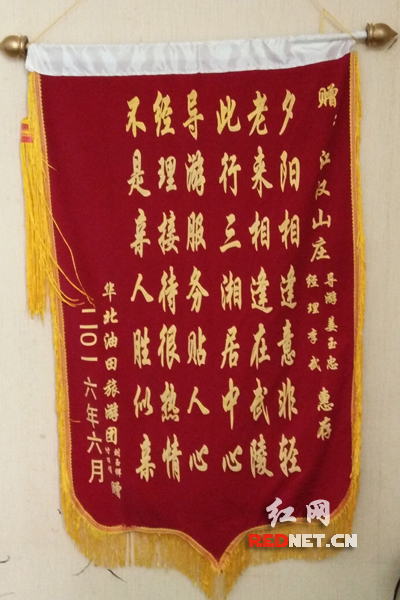 赠：江汉山庄 导游姜玉忠 经理李武 惠存
夕阳相逢意非轻
老来相逢在武陵
此行三湘居中心
导游服务贴人心
经理接待很热情
不是亲人胜似亲
华北油田旅游团 赠
二〇一六年六月
红网
REDNET.CN